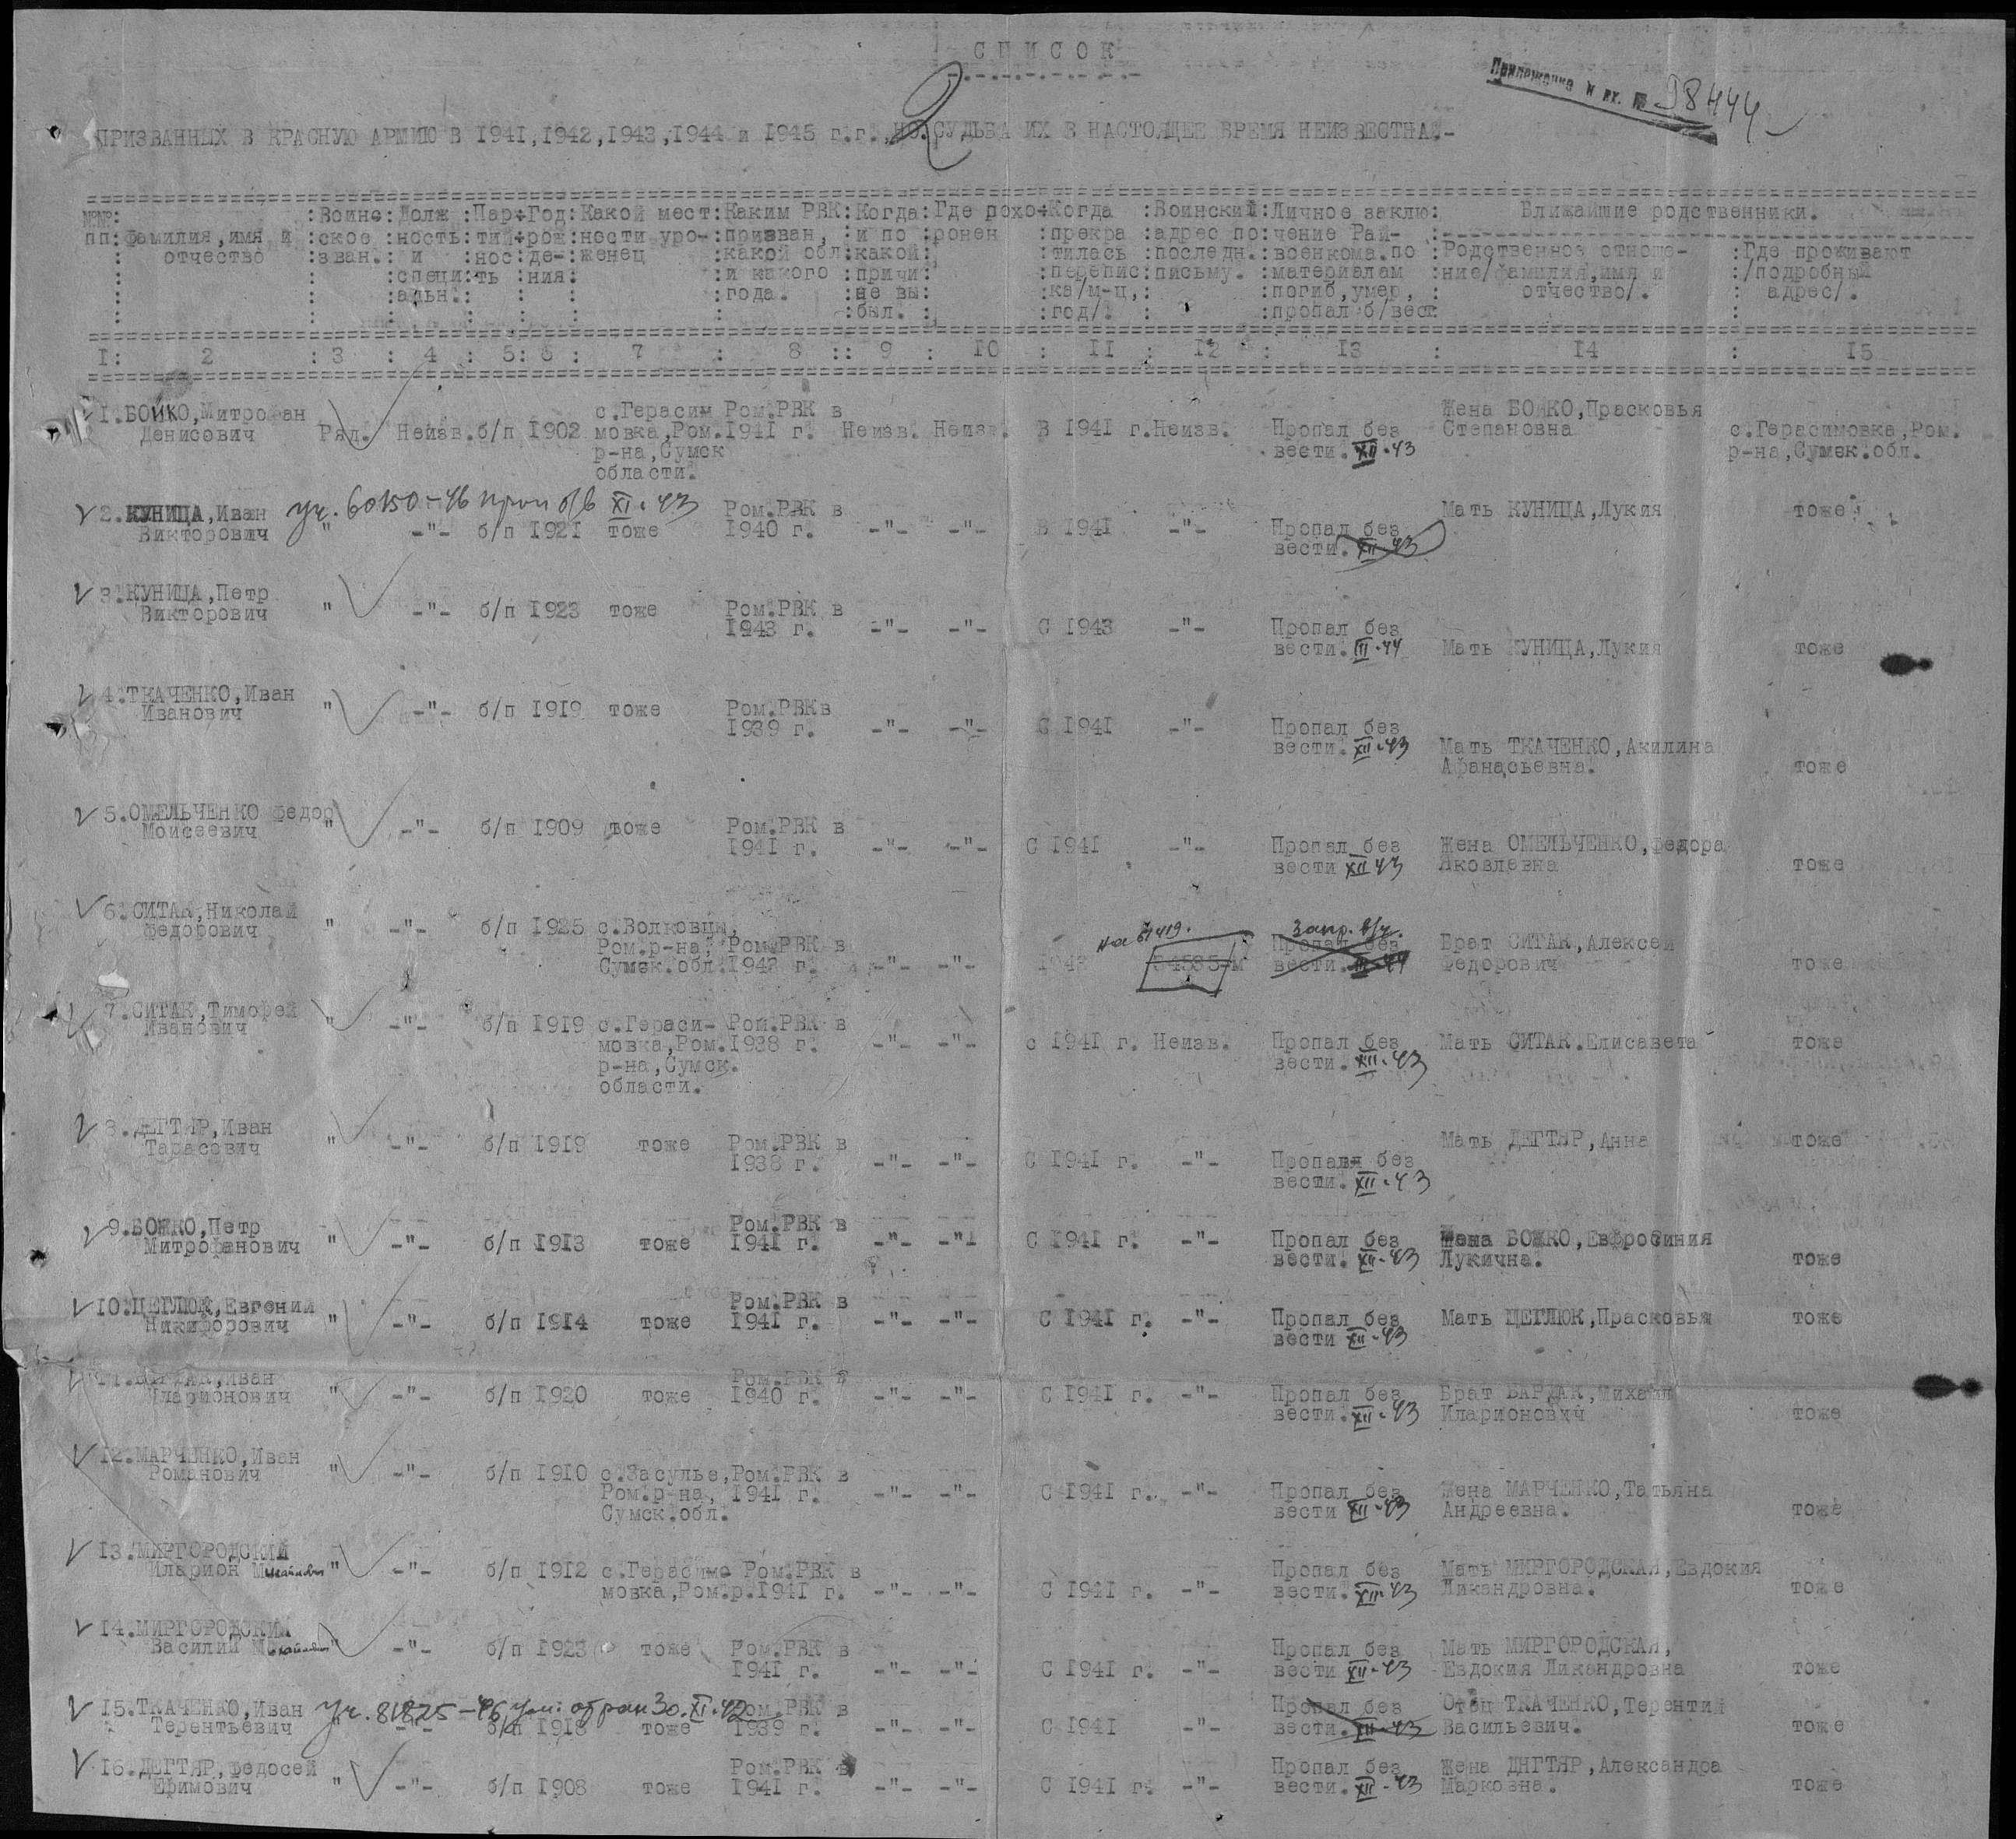 СПИСОК
Приложение к вх. № 98444
ПРИЗВАННЫХ В КРАСНУЮ АРМИЮ В 1941,1942,1943,1944 и 1945 г.г., НО СУДЬБА ИХ В НАСТОЯЩЕЕ ВРЕМЯ НЕИЗВЕСТНА.-
2
№№:  :Воинс:Долж :Пар-:Год:Какой мест:Каким РВК:Когда:Где похо-:Когда :Воинский:Личное заклю: Ближайшие родственники.
пп:фамилия,имя и :ское :ность:тий-:рож:ности уро-:призван, :и по :ронен :прекра :адрес по:чение Рай- :
: отчество :зван.: и :нос:де-:женец :какой обл:какой: :тилась :последн.:военкома по :Родственное отноше- :Где проживают
: : :специ:ть :ния: :и какого :причи: :перепис:письму. :материалам :ние/фамилия,имя и :/подробный
: : :альн.: : : :года. :не вы: :ка/м-ц,: :погиб,умер, : отчество/. : адрес/.
: : : : : : : :был. : :год/. : :пропал б/вест: :
1: 2 : 3 : 4 : 5: 6 : 7 : 8 :: 9 : 10 : 11 : 12 : 13 : 14 : 15
1.БОЙКО,Митрофан с.Герасим Ром.РВК в Жена БОЙКО,Прасковья
Денисович Ряд. Неизв. б/п 1902 мовка,Ром.1941 г. Неизв. Неизв. В 1941 г.Неизв. Пропал без Степановна с.Герасимовка,Ром.
р-на,Сумск вести.XII-43 р-на,Сумск.обл.
области.
2.КУНИЦА,Иван уч. 60150-46 проп б/в XI.43 Ром.РВК в Мать КУНИЦА,Лукия тоже
Викторович " -"- б/п 1921 тоже 1940 г. -"- -"- В 1941 -"- Пропал без
вести.XII-43
3.КУНИЦА,Петр
Викторович " -"- б/п 1923 тоже Ром.РВК в
1943 г. -"- -"- С 1943 -"- Пропал без
вести.III-44 Мать КУНИЦА,Лукия тоже
4.ТКАЧЕНКО,Иван
Иванович " -"- б/п 1919 тоже Ром.РВКв
1939 г. -"- -"- С 1941 -"- Пропал без
вести.XII-43 Мать ТКАЧЕНКО,Акилина
Афанасьевна. тоже
5.ОМЕЛЬЧЕНКО федор
Моисеевич " -"- б/п 1909 тоже Ром.РВК в
1941 г. -"- -"- С 1941 -"- Пропал без Жена ОМЕЛЬЧЕНКО,федора
вести XII 43 Яковлевна тоже
6.СИТАК,Николай
федорович " -"- б/п 1925 с.Волковцы, на 61419. Запр. в/ч.
Ром.р-на, Ром.РВК в Пропал без Брат СИТАК,Алексей
Сумск.обл.1943 г. -"- -"- 1943 54585-м вести.III-44 федорович тоже
7.СИТАК,Тимофей
Иванович " -"- б/п 1919 с.Гераси- Ром.РВК в
мовка,Ром.1938 г. -"- -"- с 1941 г. Неизв. Пропал без Мать СИТАК.Елисавета тоже
р-на,Сумск. вести.XII-43
области.
8.ДЕГТЯР,Иван Мать ДЕГТЯР,Анна тоже
Тарасович " -"- б/п 1919 тоже Ром.РВК в
1938 г. -"- -"- С 1941 г. -"- Пропал без
вести.XII-43
9.БОЖКО,Петр Ром.РВК в
Митрофанович " -"- б/п 1913 тоже 1941 г. -"- -"- С 1941 г. -"- Пропал без Жена БОЖКО,Евфросиния
вести.XII-43 Лукична. тоже
10.ЦЕГЛЮК,Евгений Ром.РВК в
Никифорович " -"- б/п 1914 тоже 1941 г. -"- -"- С 1941 г. -"- Пропал без Мать ЦЕГЛЮК,Прасковья тоже
вести XII-43
11.БАРДАК,Иван Ром.РВК в
Иларионович " -"- б/п 1920 тоже 1940 г. -"- -"- С 1941 г. -"- Пропал без Брат БАРДАК,Михаил
вести.XII-43 Иларионович тоже
12.МАРЧЕНКО,Иван
Романович " -"- б/п 1910 с.Засулье,Ром.РВК в
Ром.р-на, 1941 г. -"- -"- С 1941 г. -"- Пропал без Жена МАРЧЕНКО,Татьяна
Сумск.обл. вести XII-43 Андреевна. тоже
13.МИРГОРОДСКИЙ
Иларион Михайлович " -"- б/п 1912 с.Герасимо Ром.РВК в Пропал без Мать МИРГОРОДСКАЯ,Евдокия
мовка,Ром.р.1941 г. -"- -"- С 1941 г. -"- вести.XII-43 Ликандровна. тоже
14.МИРГОРОДСКИЙ
Василий Михайлович " -"- б/п 1923 тоже Ром.РВК в Пропал без Мать МИРГОРОДСКАЯ,
1941 г. -"- -"- С 1941 г. -"- вести XII-43 Евдокия Ликандровна тоже
15.ТКАЧЕНКО,Иван уч. 81825-46 ум. от ран 30.XI.42 Ром.РВК в Пропал без Отец ТКАЧЕНКО,Терентий
Терентьевич " -"- б/п 1918 тоже 1939 г. -"- -"- С 1941 -"- вести.XII-43 Васильевич. тоже
16.ДЕГТЯР,федосей Ром.РВК в Пропал без Жена ДНГТЯР,Александра
Ефимович " -"- б/п 1908 тоже 1941 г. -"- -"- С 1941 г. -"- вести.XII-43 Марковна. тоже